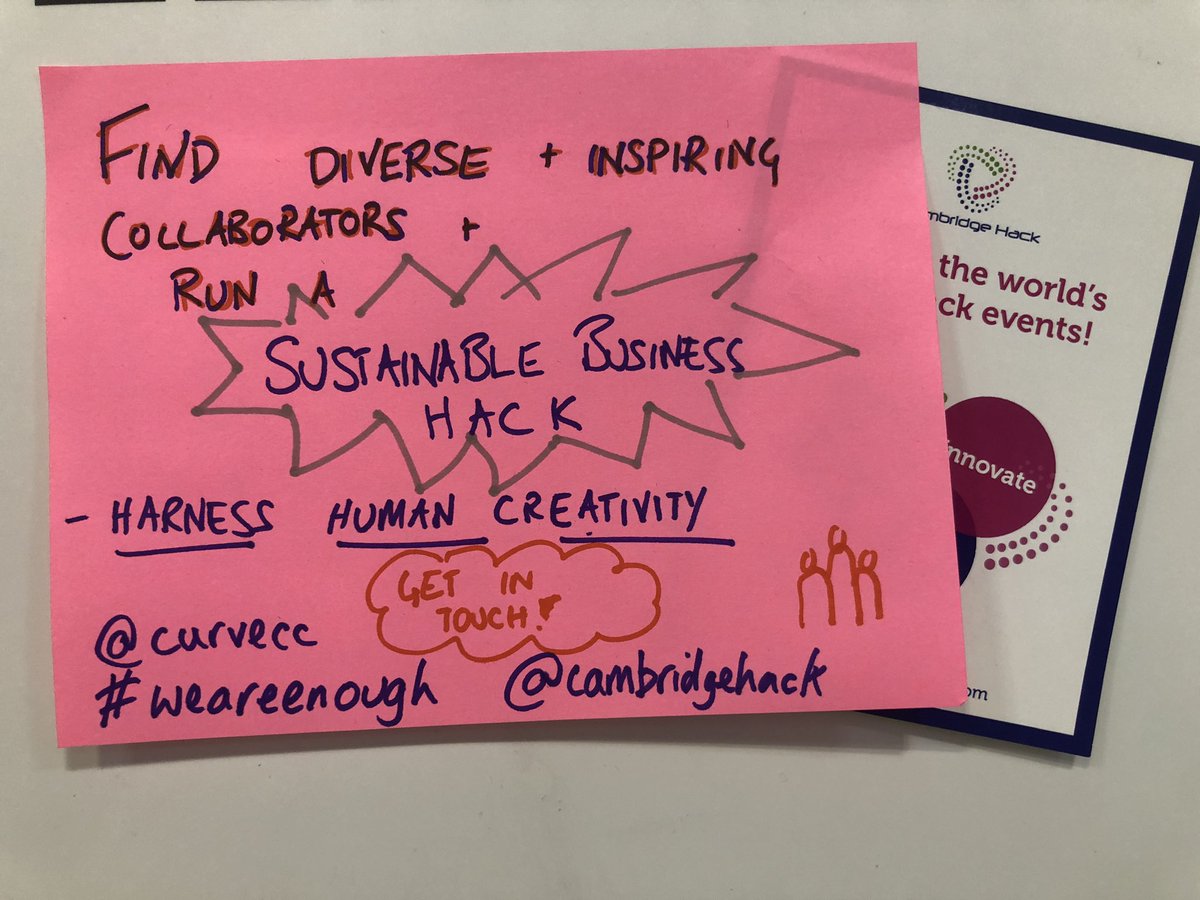 FIND DIVERSE + INSPIRING
COLLABORATORS +
RUN A
SUSTAINABLE BUSINESS
HACK
- HARNESS HUMAN CREATIVITY
GET IN
TOUCH!
@curvecc
#weareenough @cambridgehack
mbridge Hack
the world's
ck events!
innovate
om